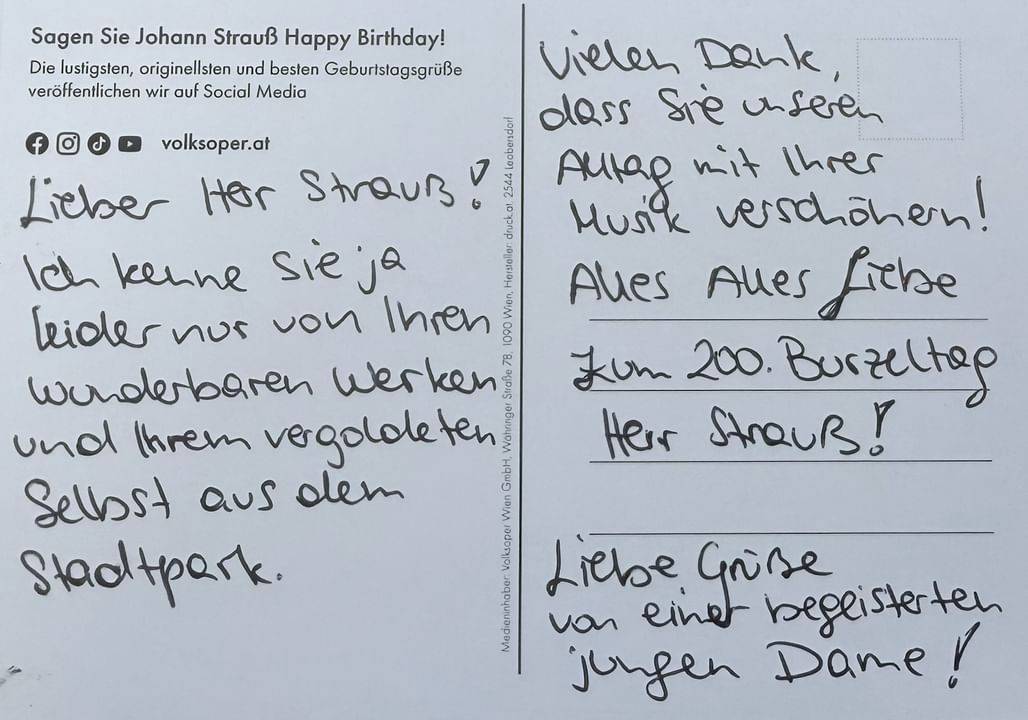 Sagen Sie Johann Strauß Happy Birthday!
Die lustigsten, originellsten und besten Geburtstagsgrüße
veröffentlichen wir auf Social Media
volksoper.at
Lieber Herr Strauß!
Ich kenne Sie ja
leider nur von Ihren
wunderbaren Werken
und Ihrem vergoldeten
Selbst aus dem
Stadtpark.
Medieninhaber: Volksoper Wien GmbH, Währinger Straße 78, 1090 Wien, Hersteller: druck.at, 2544 Leobersdorf
Vielen Dank,
dass Sie unseren
Alltag mit Ihrer
Musik verschönern!
Alles Alles Liebe
zum 200. Burzeltag
Herr Strauß!
Liebe Grüße
von einer begeisterten
jungen Dame!